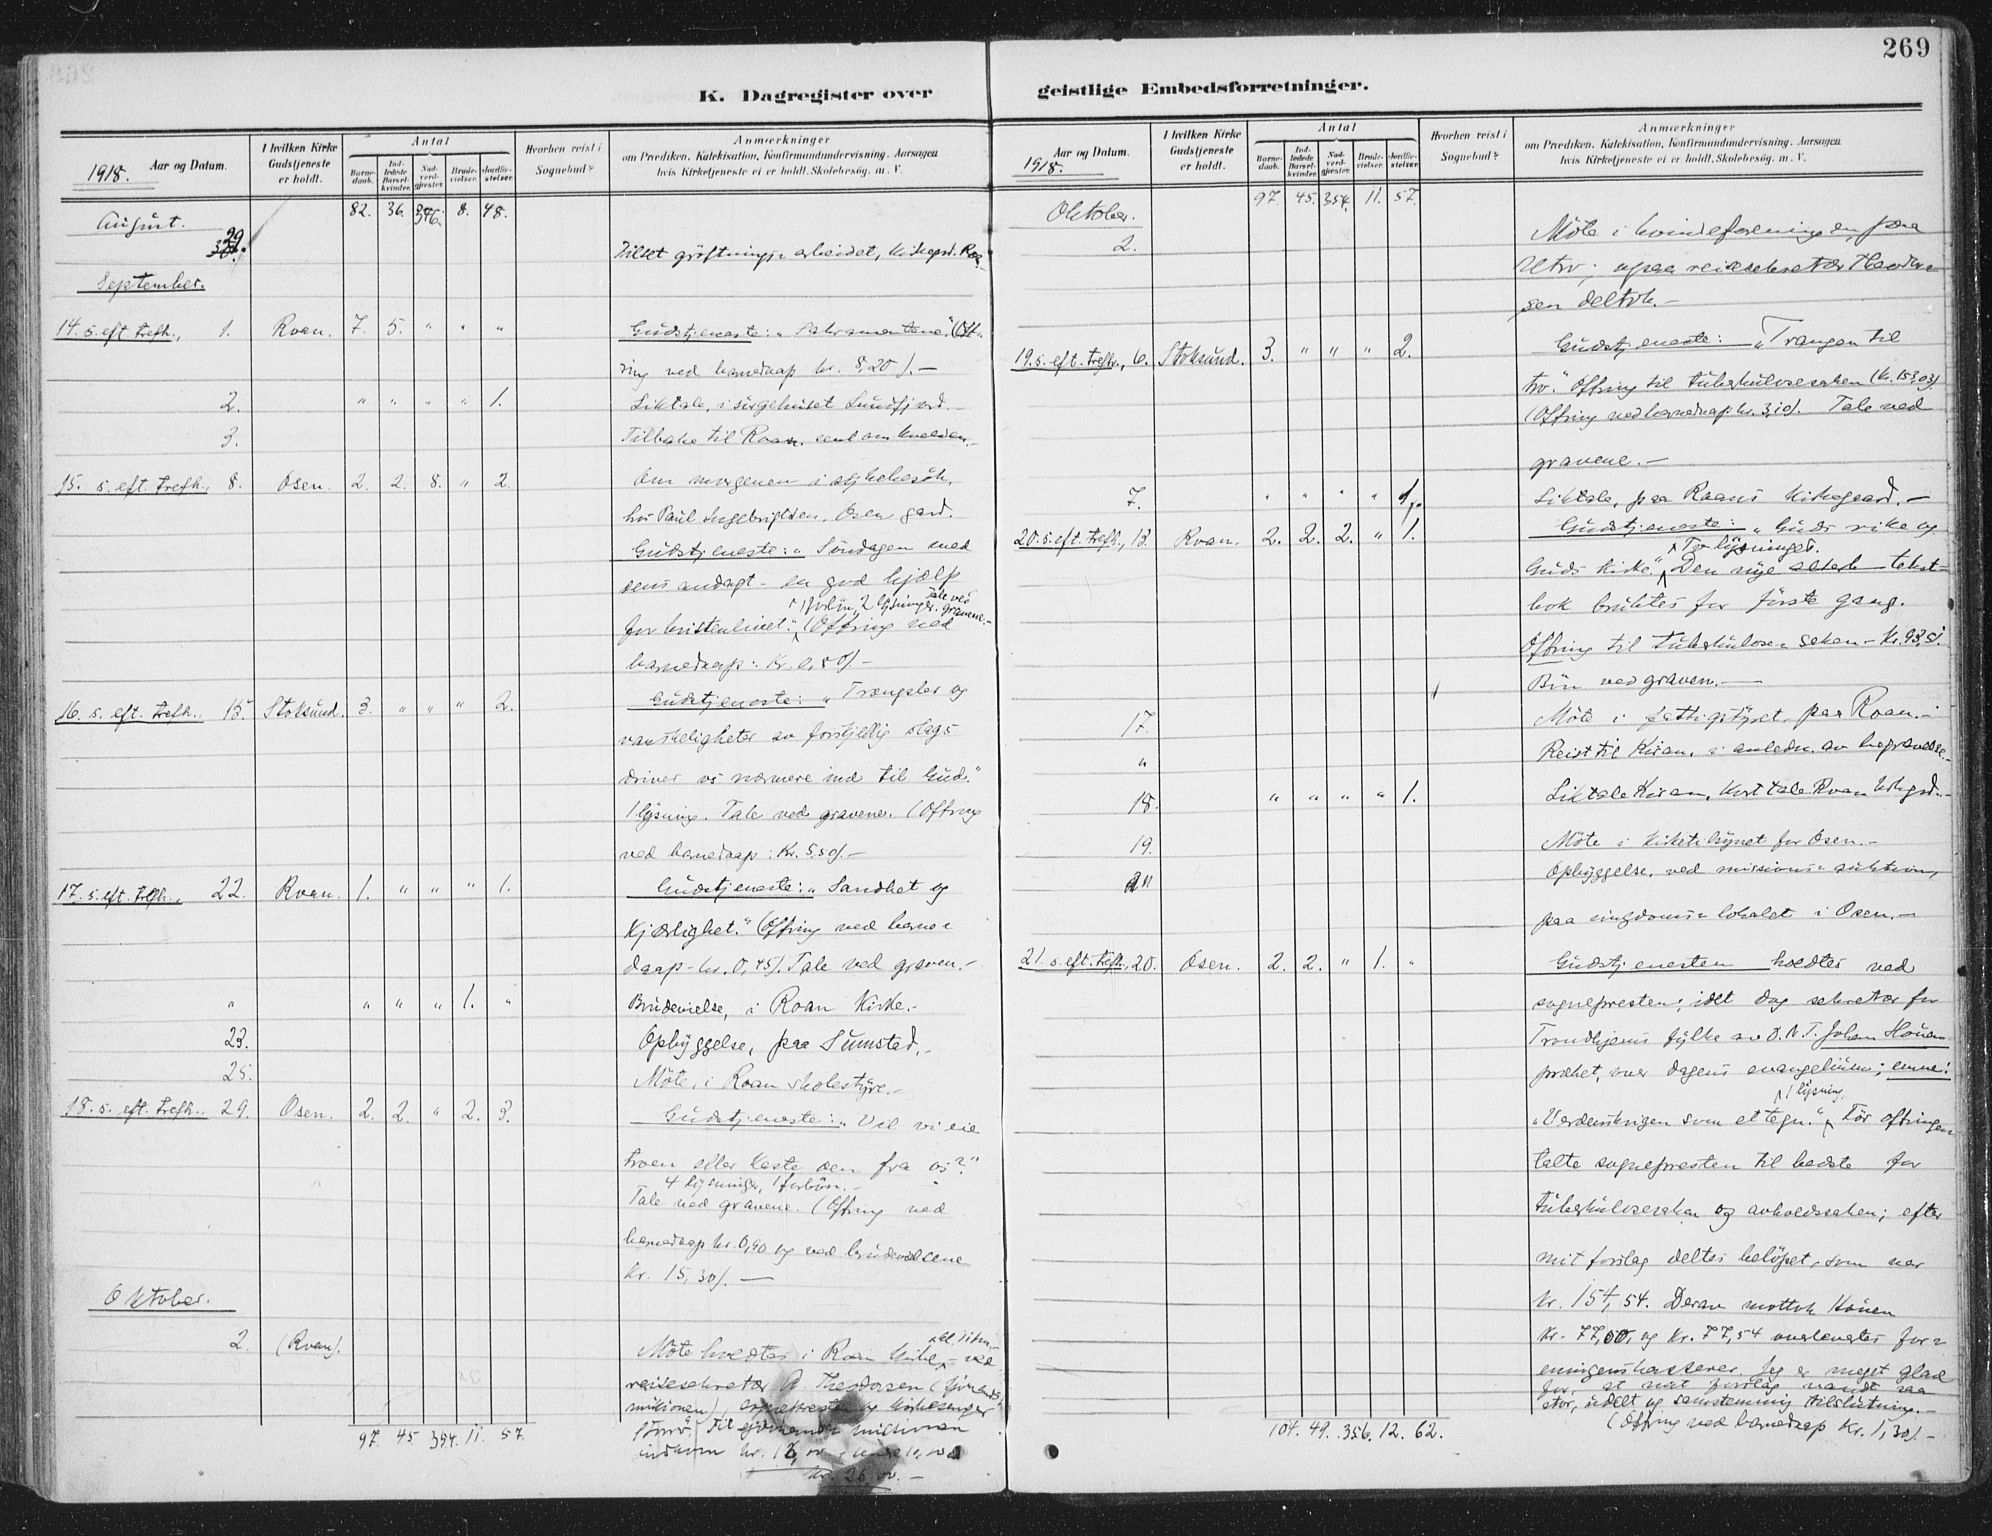 269
K. Dagregister over
geistlige Embedsforretninger.
1918. Aar og Datum.
I hvilken Kirke Gudstjeneste er holdt.
Antal
Barnedaab.
Indledede Barselkvinder.
Nadverdgjæster.
Brudevielser.
Jordfæstelser.
Hvorhen reist i Sognebud?
Anmærkninger
om Prædiken, Katekisation, Konfirmandundervisning, Aarsagen
hvis Kirketjeneste ei er holdt, Skolebesøg, m. V.
82. 36. 346. 8. 48.
August.
29. Tilset grøftnings arbeidet, Kirkegrd. Roan
September.
14. s. eft. trefh., 1. Roan. 7. 5. " " " Gudstjeneste: "Sakramentene." (Off-
ring ved barnedaap kr. 8,20). —
2. " " " " 1. Liktale, i sørgehuset Sundfjord. —
3. Tilbake til Roan, sent om kvelden. —
15. s. eft. trefh., 8. Osen. 2. 2. 8. " 2. Om morgenen i sykebesøk,
hos Paul Ingebrigtsen, Osen gard.
Gudstjeneste: "Søndagen med
sens andagt - en god hjælp
1 forbøn, 2 lysninger. Tale ved gravene. —
for kristenlivet." (Offring ved
barnedaap: Kr. 0,50). —
16. s. eft. trefh., 15. Stoksund. 3. " " " 2. Gudstjeneste: "Trængsler og
vanskeligheter av forskjellig slags
driver os nærmere ind til Gud."
1 lysning. Tale ved gravene. (Offring
ved barnedaap: Kr. 5,50). —
17. s. eft. trefh., 22. Roan. 1. " " " 1. Gudstjeneste: "Sandhet og
Kjærlighet." (Offring ved barne-
daap - kr. 0,45). Tale ved graven. —
" " " " 1. " Brudevielse, i Roan Kirke. —
23. Opbyggelse, paa Sumstad. —
25. Møte, i Roan skolestyre. —
18. s. eft. trefh., 29. Osen. 2. 2. " 2. 3. Gudstjeneste: "Vil vi eie
troen eller kaste den fra os?"
4 lysninger, 1 forbøn. —
Tale ved gravene. (Offring ved
barnedaap kr. 0,90 og ved brudevielsene
kr. 15,30). —
Oktober.
2. (Roan). Møte holdtes i Roan Kirke, ved
reisesekretær Theodorsen
misionen), sognepresten og kirkesanger
Til misionen
indkom kr.
97. 45. 354. 11. 57.
1918. Aar og Datum.
I hvilken Kirke Gudstjeneste er holdt.
Antal
Barnedaab.
Indledede Barselkvinder.
Nadverdgjæster.
Brudevielser.
Jordfæstelser.
Hvorhen reist i Sognebud?
Anmærkninger
om Prædiken, Katekisation, Konfirmandundervisning, Aarsagen
hvis Kirketjeneste ei er holdt, Skolebesøg, m. V.
97. 45. 354. 11. 57.
Oktober.
2. Møte i kvindeforeningen, paa
reisesekretær Theodor-
sen deltok. —
19. s. eft. trefh., 6. Stoksund. 3. " " " 2. Gudstjeneste: "Trangen til
tro." Offring til tuberkulosesaken (kr. 15,03).
(Offring ved barnedaap kr. 3,10). Tale ved
gravene. —
7. " " " " 1. Liktale, paa Roans kirkegaard. —
20. s. eft. trefh., 13. Roan. 2. 2. 2. " 1. Gudstjeneste: "Guds rike og
To lysninger.
Guds kirke." Den nye alterb tekst-
bok bruktes for første gang.
Offring til tuberkulose-saken - Kr. 93,51.
Bøn ved graven. —
17. Møte i fattigstyret, paa Roan. —
" Reist til Kiran, i anledn. av begravelse. —
18. " " " " 1. Liktale Kiran, kort tale Roan kirkegrd. —
19. Møte i kirketilsynet for Osen. —
" Opbyggelse, ved missions-auktion,
paa ungdoms-lokalet i Osen. —
21. s. eft. trefh., 20. Osen. 2. 2. " 1. " Gudstjenesten holdtes ved
sognepresten; idet dog sekretær for
Trondhjems fylke av D. N. T. Johan Houen
præket, over dagens evangelium; emne:
1 lysning.
"Verdenskrigen som et tegn." Før offringen
talte sognepresten til bedste for
tuberkulosesaken og avholdssaken; efter
mit forslag deltes beløpet, som var
kr. 154,54. Derav mottok Houen
kr. 77,00, og kr. 77,54 overlevertes for-
eningens kasserer. Jeg er meget glad
for, at mit forslag vandt saa
stor, udelt og samstemmig tilslutning. —
(Offring ved barnedaap kr. 1,30). —
104. 49. 356. 12. 62.